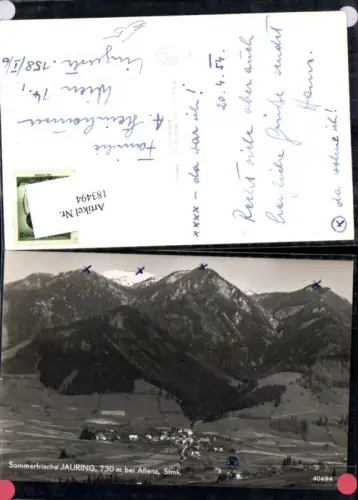 xxxx – da war ich!
20.4.54.
Recht viele aber auch
herzliche Grüße sendet
Hans.
ⓧ da wohne ich!
Familie
A.
Wien 14.,
Linzerstr. 158/I/6
Artikel Nr.
183494
Sommerfrische JAURING, 730 m, bei Aflenz, Stmk.
40494